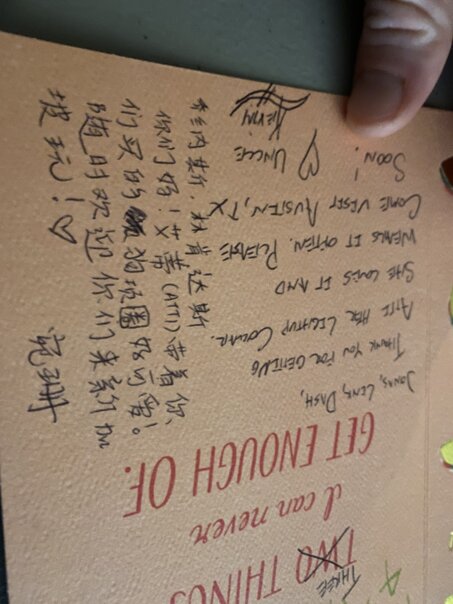 THREE
TWO THINGS
I can never
GET ENOUGH OF.
JONAS, LINK, DASH,
THANK YOU FOR GETTING
ATTI HER LIGHTUP COLLAR.
SHE LOVES IT AND
WEARS IT OFTEN. PLEASE
COME VISIT AUSTIN, TX
SOON!
♡ UNCLE
KEVIN
林肯达斯
你们好！艾蒂(ATTI)带着你
们买的狗项圈好可爱。
的欢迎你们来
玩！♡